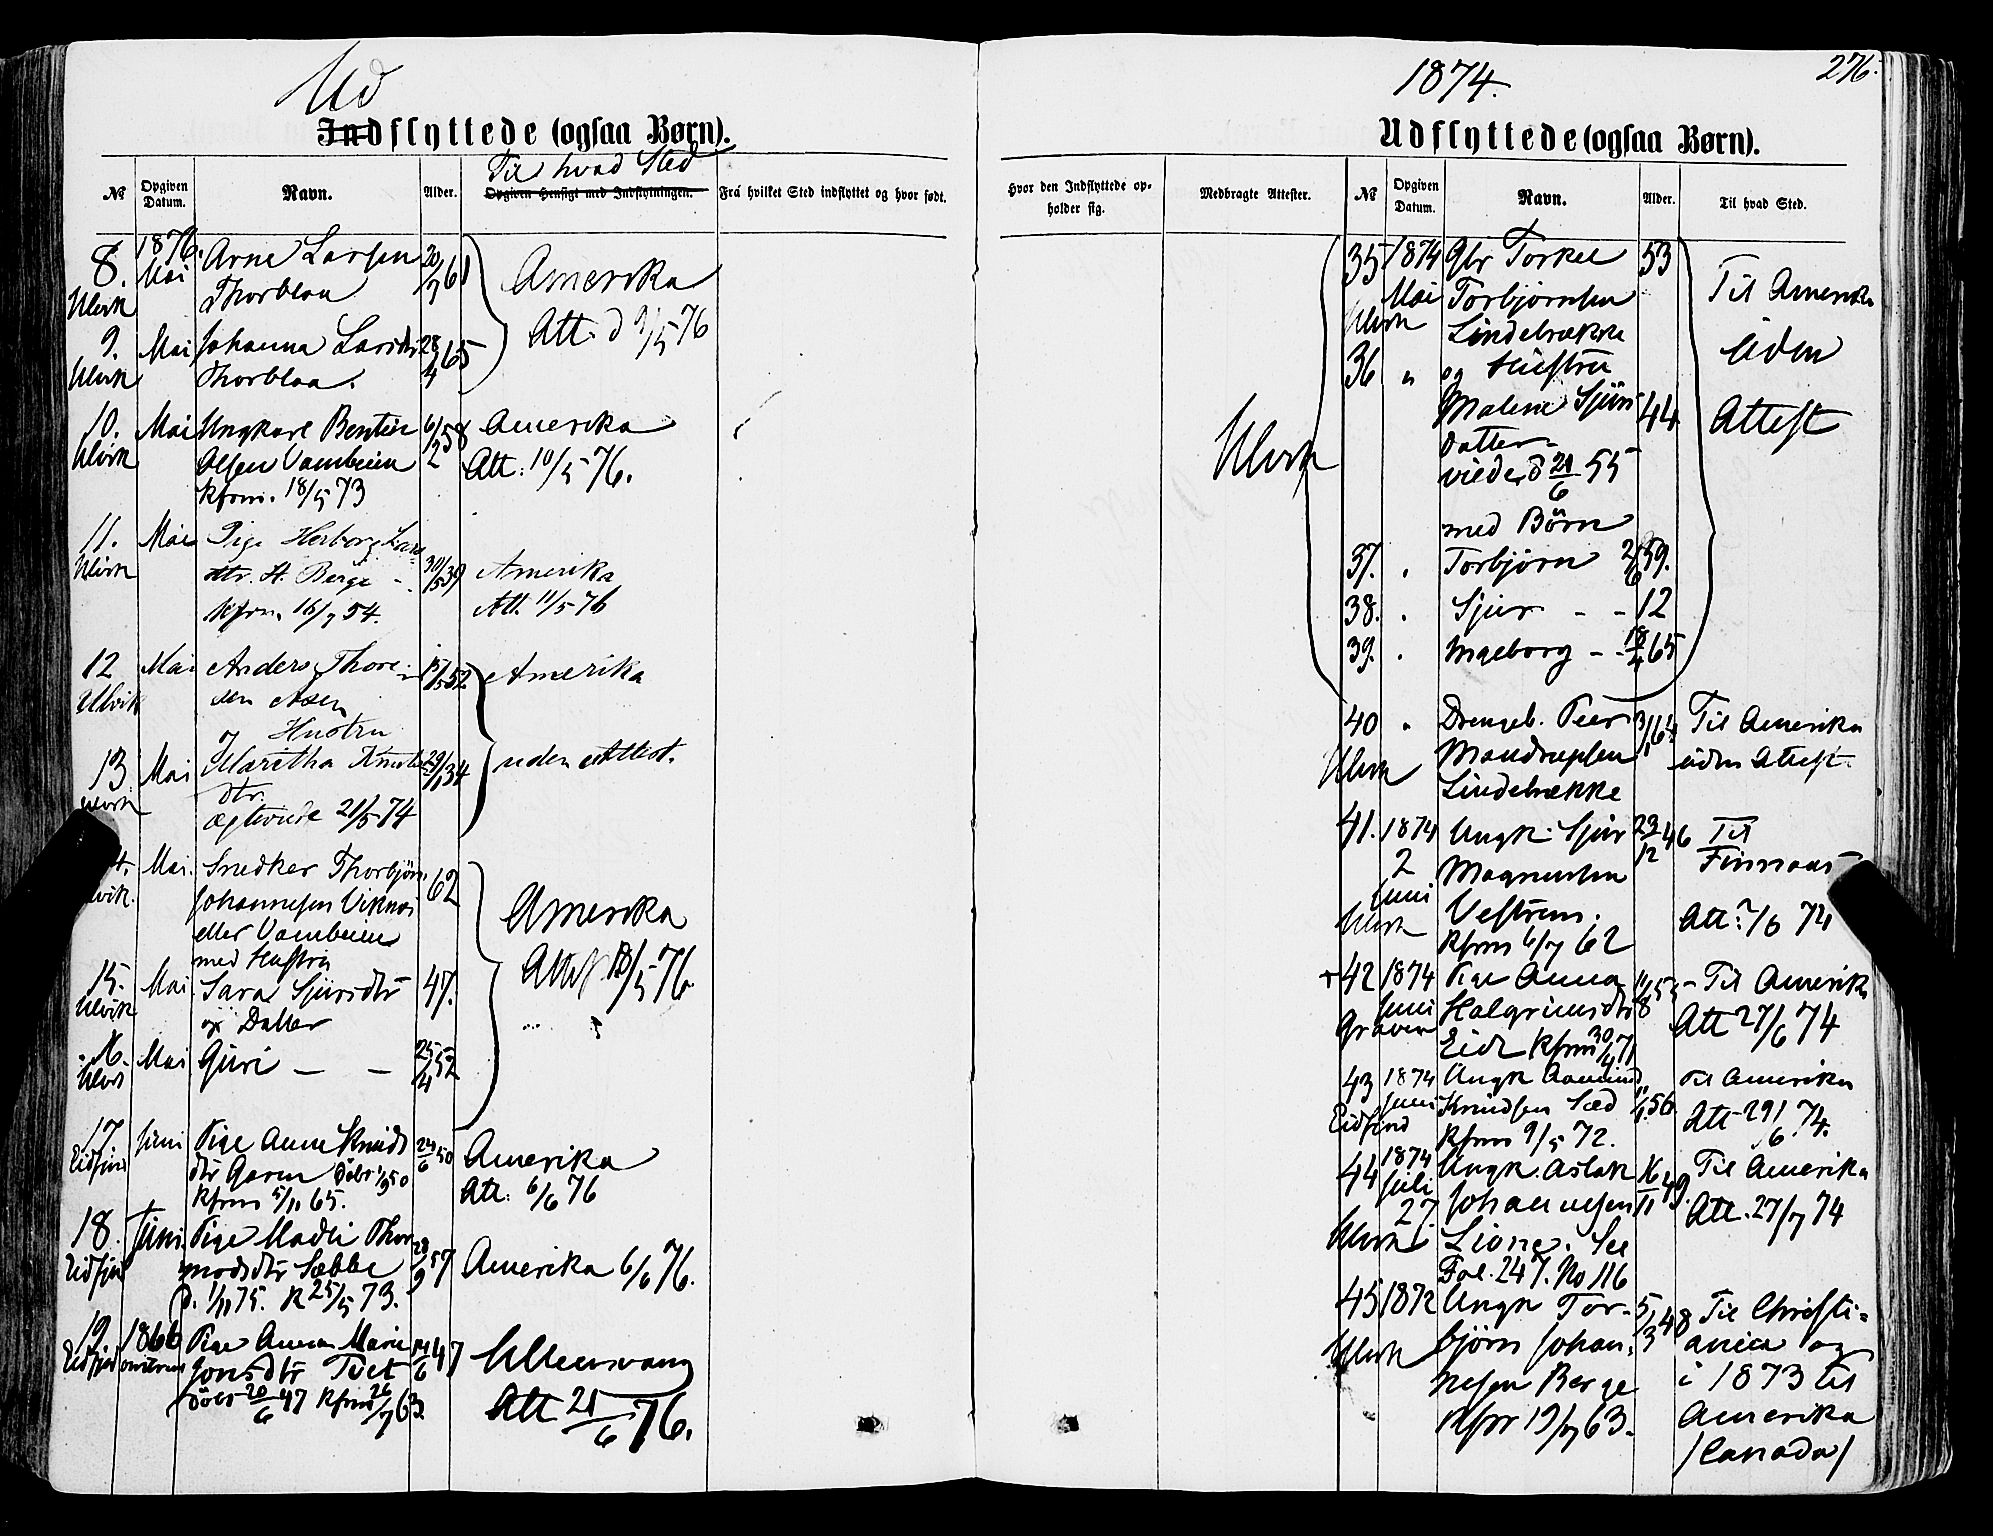 Ud
Indflyttede (ogsaa Børn).
Til hvad Sted
№ Opgiven Datum. Navn. Alder. Opgiven Hensigt med Indflytningen. Fra hvilket Sted indflyttet og hvor født.
8. 1876. Arne Larsen 20/7 61 Amerika
Ulvik Mai Thorblaa Att. d 9/5 76
9. Mai Johanna Larsdtr 28/4 65
Ulvik Thorblaa.
10. Mai Ungkarl Bentin 6/2 58 Amerika
Ulvik Olsen Vambeien Att: 10/5 76.
Kfrm. 18/5 73
11. Mai Pige Herborg Lars
Ulvik dtr. H. Berge 30/5 39 Amerika
Kfrm. 16/7 54. Att. 11/5 76
12 Mai Anders Thore- 15/5 52 Amerika
Ulvik sen Aasen
og Hustru
13. Mai Maritha Knuts 29/1 34 uden Attest.
Ulvik dtr.
ægteviede 21/5 74
Mai. Snedker Thorbjørn 62
Johannesen Viknæs Amerika
eller Vambeien Attest 18/5 76.
med Hustru
15. Mai Sara Sjursdtr 47.
Ulvik og Datter
16. Mai Guri — — 25/4 52
Ulvik
17 Juni Pige Anna Knuds 24/6 50 Amerika
Eidfjord dtr Garen døbt Att: 6/6 76
Kfrm 5/11 65.
18. Juni Pige Madli Thor 28/9 57 Amerika 6/6 76.
Eidfjord modsdtr Sæbbe
d. 1/11 75. K 25/5 73.
19. 1866 Pige Anna Marie 14/6 47 Ullensvang
Eidfjord omtrent Jonsdtr Tveit Att 21/6 76.
døbt 20/6 47 Kfrm 26/7 63
1874.
276.
Udflyttede (ogsaa Børn).
Hvor den Indflyttede opholder sig. Medbragte Attester. № Opgiven Datum. Navn. Alder. Til hvad Sted.
35 1874 Gbr Torkel 53 Til Amerika
Mai Torbjørnsen
Ulvik Lindebrække uden
36 " og Hustru
Ulvik Malene Sjurs 44 Attest
datter
viede d 21/6 55
med Børn
37. " Torbjørn 2/6 59.
38. " Sjur - - 12
39. " Ingeborg - - 18/4 65
40 " Drengeb. Peer 3/1 64 Til Amerika
Ulvik Mandrupsen uden Attest.
Lindebrække
41. 1874 Ungk. Sjur 23/12 46 Til
2 Magnussen Finnaas
Juni Vestrem. Att: 2/6 74
Ulvik Kfrm 6/7 62
+ 42 1874 Pige Anna 11/8 55 - Til Amerika
Juni Halgrimsdtr Att 27/6 74
Graven Eide Kfrm 30/4 71
43 1874 Ungk Aamund 56 Til Amerika
Juni Knudsen Sæd Att 29/6 74.
Eidfjord Kfrm 9/5 72.
44 1874 Ungk. Aslak 16/11 49. Til Amerika
Juli Johannesen Att. 27/7 74
27. Lione. See
Ulvik Fol. 247. No 116
45 1872 Ungk Tor- 5/3 48 Til Christi-
Ulvik bjørn Johan- ania og
nesen Berge i 1873 til
Kfrm 19/7 63. Amerika
/Canada/